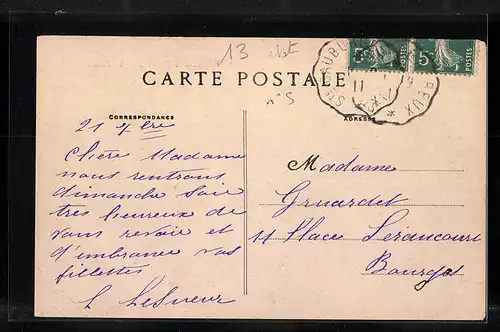 13
CARTE POSTALE
n°5
CORRESPONDANCE
ADRESSE
5c
POSTES
5c
POSTES
11
21 7bre
Chère Madame
nous rentrons
dimanche soir
très heureux de
vous revoir et
d'embrasser vos
fillettes
L Lesueur
Madame
Gruardet
11 Place Séraucourt
Bourges